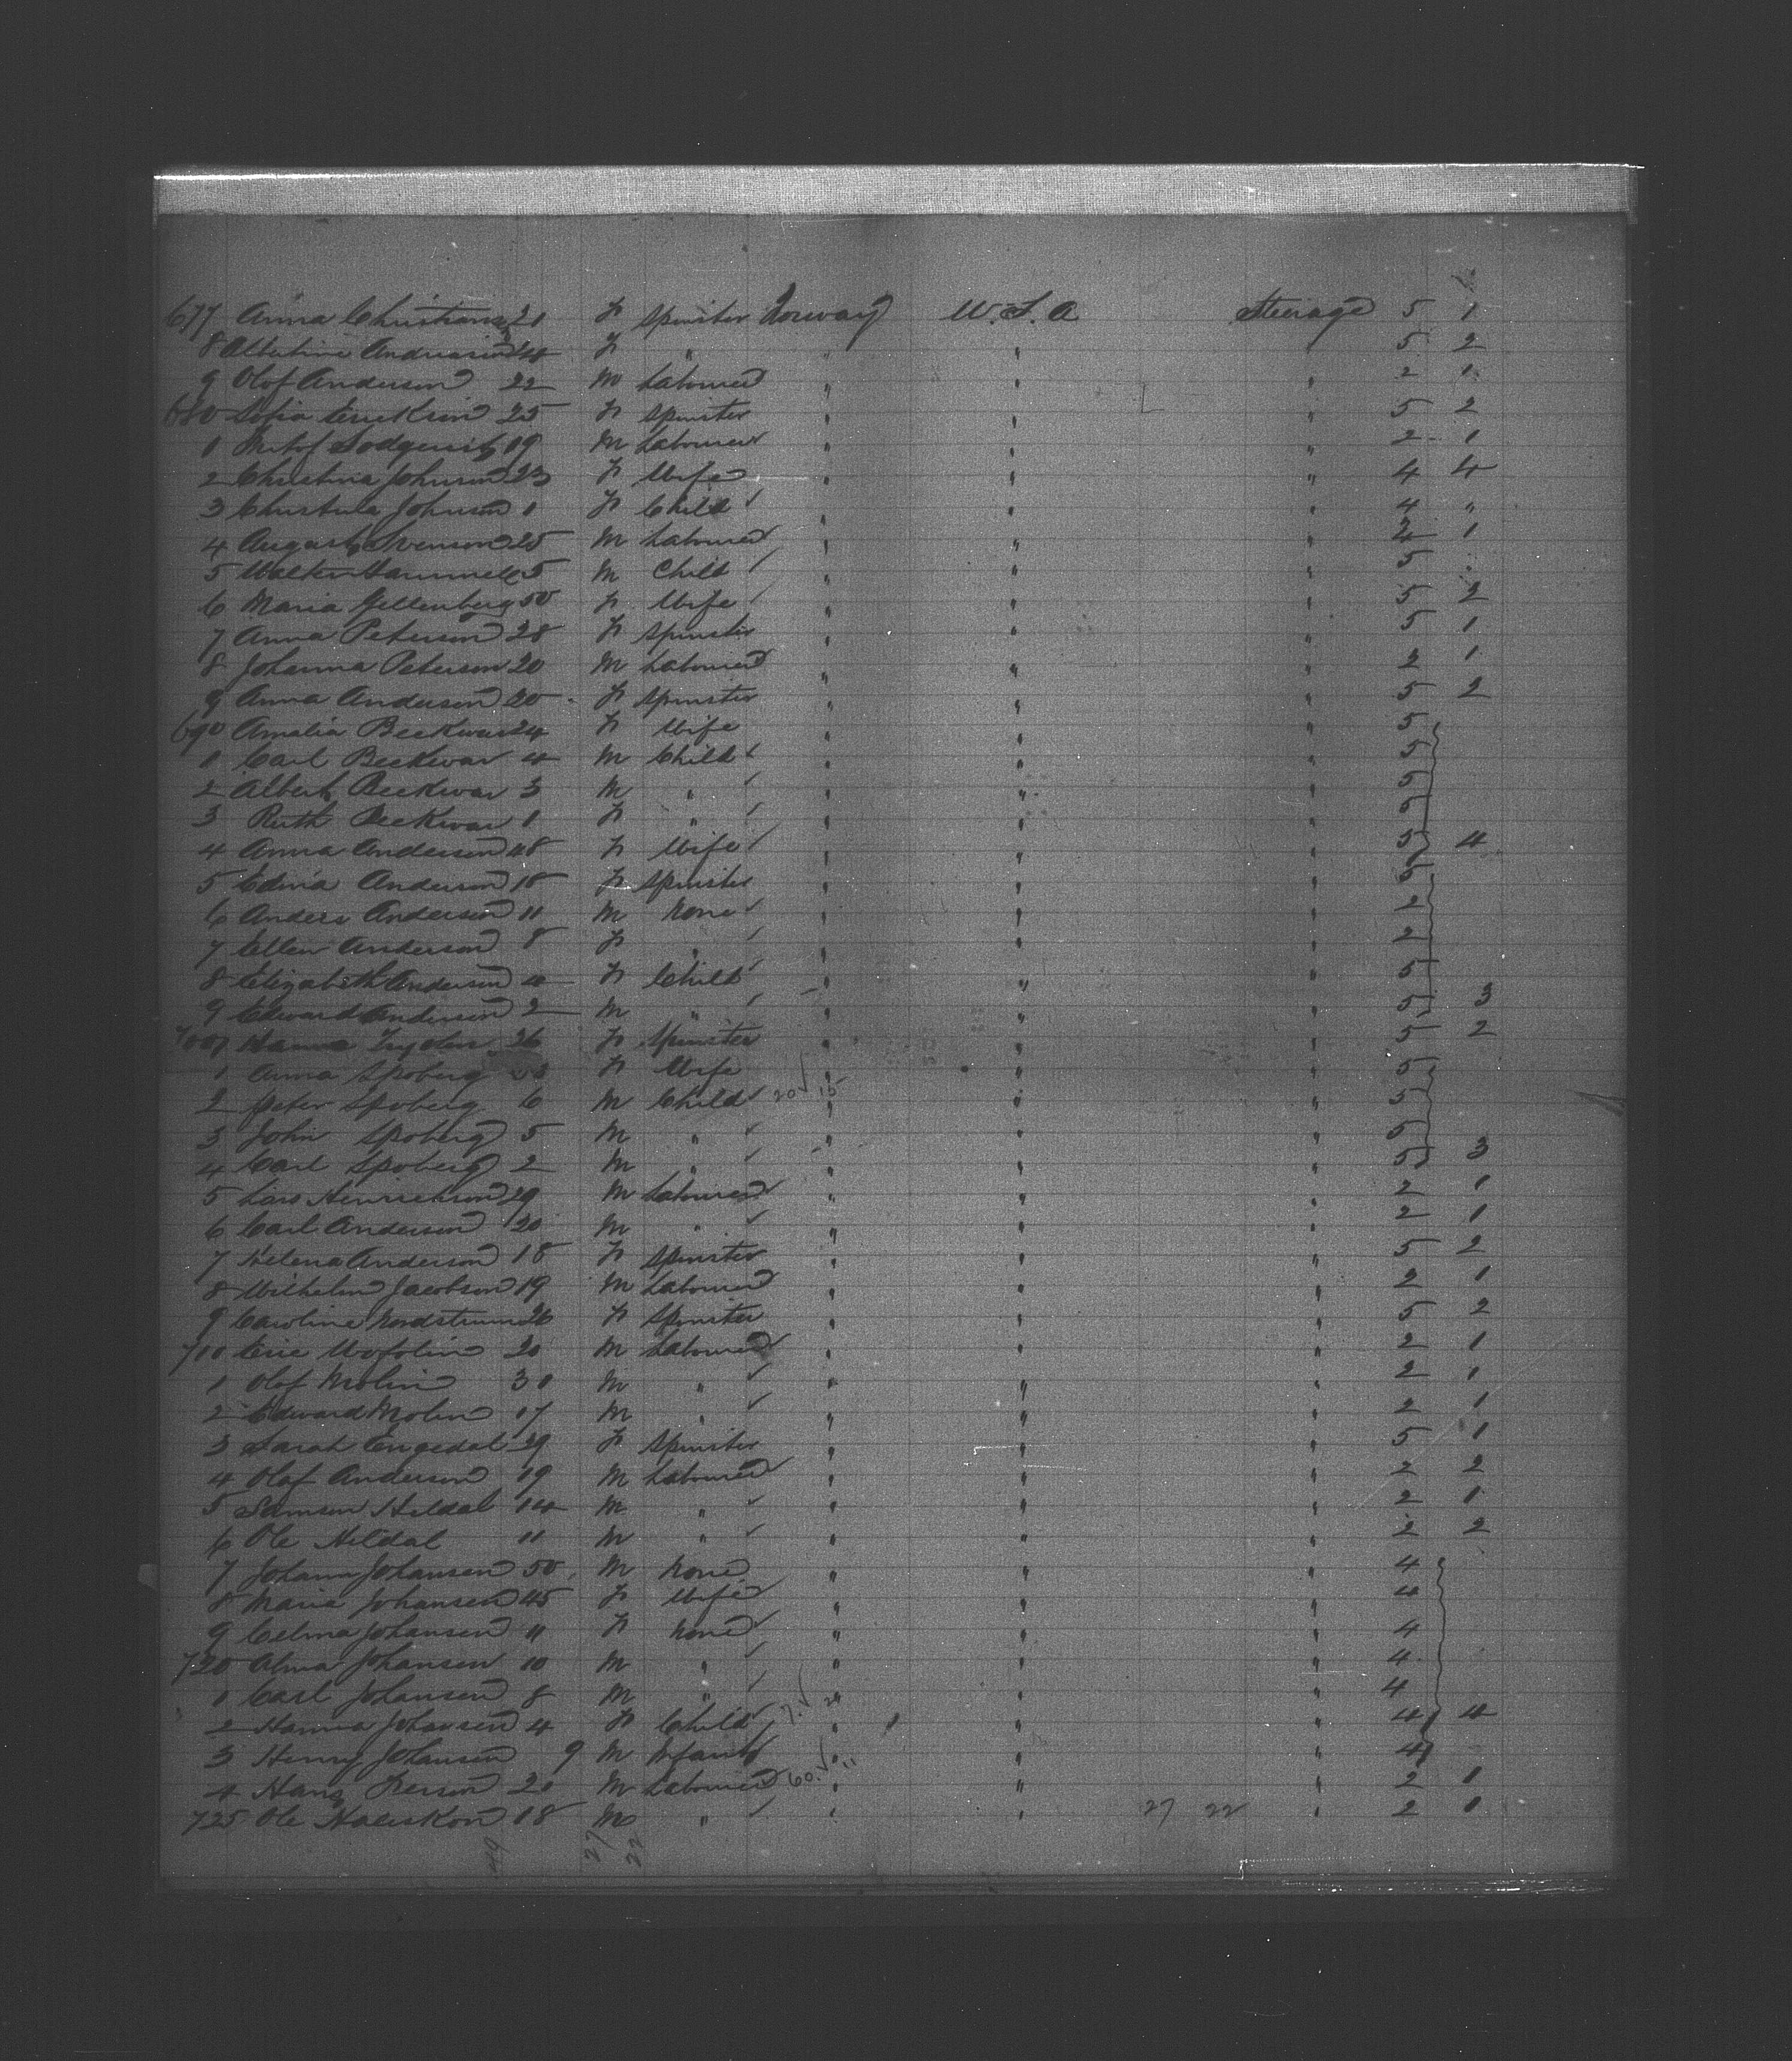 677 Anna Christians 21 F Spinster Norway U.S.A Steerage 5 1
8 Albertina Anderson 24 F " " " " 5 2
9 Olof Anderson 22 M Labourer " " " 2 1
680 Sofia Erickson 25 F Spinster " " " 5 2
1 19 M Labourer " " " 2 1
2 Christina Johnson 23 F Wife " " " 4 4
3 Christina Johnson 1 F Child " " " 4 "
4 August Svenson 25 M Labourer " " " 2 1
5 Walter 5 M Child " " " 5
6 Maria Gellenberg 50 F Wife " " " 5 2
7 Anna Peterson 28 F Spinster " " " 5 1
8 Johanna Peterson 20 M Labourer " " " 2 1
9 Anna Anderson 20 F Spinster " " " 5 2
690 Amalia Beekwar 24 F Wife " " " 5
1 Carl Beekwar 4 M Child " " " 5
2 Albert Beekwar 3 M " " " " 5
3 Ruth Beekwar 1 F " " " " 5
4 Anna Anderson 48 F Wife " " " 5 4
5 Edvia Anderson 18 F Spinster " " " 5
6 Anders Anderson 11 M None " " " 2
7 Ellen Anderson 8 F " " " " 2
8 Elizabeth Anderson 4 F Child " " " 5
9 Edward Anderson 2 M " " " " 5 3
700 Hanna 26 F Spinster " " " 5 2
1 Anna Spoberg F Wife " " " 5
2 Peter Spoberg 6 M Child 20 ✓ 15 " " " 5
3 John Spoberg 5 M " " " " 5
4 Carl Spoberg 2 M " " " " 5 3
5 Lars Henrickson 29 M Labourer " " " 2 1
6 Carl Anderson 20 M " " " " 2 1
7 Helena Anderson 18 F Spinster " " " 5 2
8 Wilhelm Jacobson 19 M Labourer " " " 2 1
9 Caroline Nordstrum 26 F Spinster " " " 5 2
710 Eric 20 M Labourer " " " 2 1
1 Olof Molin 30 M " " " " 2 1
2 Edward Molin 17 M " " " " 2 1
3 Sarah Engedal 29 F Spinster " " " 5 1
4 Olaf Anderson 19 M Labourer " " " 2 2
5 Samson Hildal 14 M " " " " 2 1
6 Ole Hildal 11 M " " " " 2 2
7 Johann Johansen 50 M None " " " 4
8 Maria Johansen 45 F Wife " " " 4
9 Celma Johansen 11 F None " " " 4
720 Alma Johansen 10 M " " " " 4
1 Carl Johansen 8 M " " " " 4
2 Hanna Johansen 4 F Child " " " 4 4
3 Henry Johansen 9 M Infant " " " 4
4 Hans 20 M Labourer 60 ✓ 11 " " " 2 1
725 Ole 18 M " " " 27 22 " 2 1
27 22